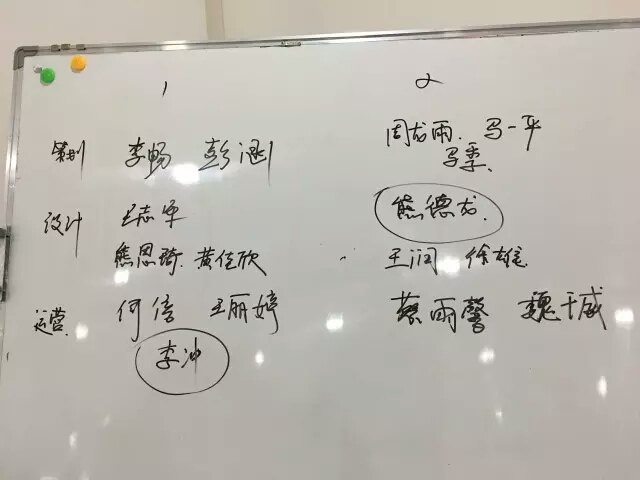 1 2
策划 李畅 彭涵 周龙雨. 马一平
马季.
设计 王志军 熊德龙.
熊恩琦. 黄佳欣 王润 徐雄
运营. 何倍 王丽婷 蔡雨馨 魏千威
李冲